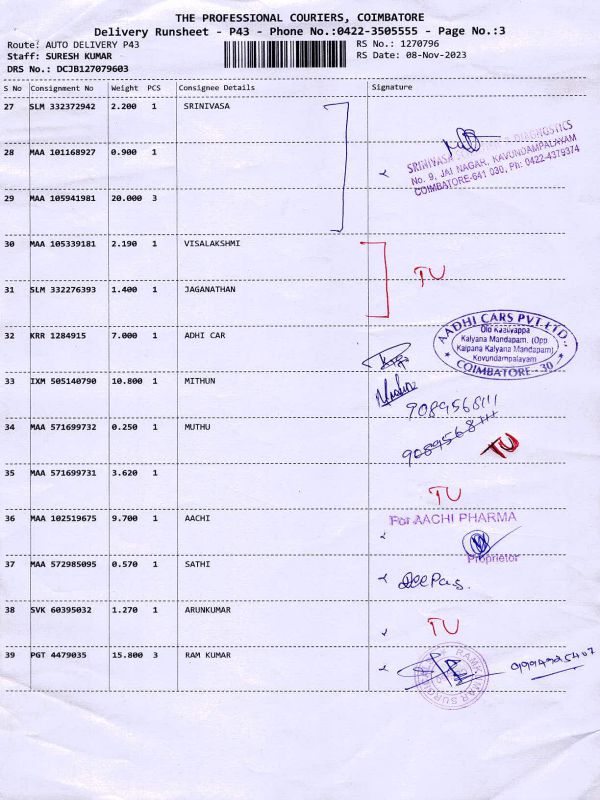 THE PROFESSIONAL COURIERS, COIMBATORE
Delivery Runsheet - P43 - Phone No.:0422-3505555 - Page No.:3
Route: AUTO DELIVERY P43 RS No.: 1270796
Staff: SURESH KUMAR RS Date: 08-Nov-2023
DRS No.: DCJB127079603
S No Consignment No Weight PCS Consignee Details Signature
27 SLM 332372942 2.200 1 SRINIVASA
DIAGNOSTICS
28 MAA 101168927 0.900 1 SRINIVASA
No. 9, JAI NAGAR, KAVUNDAMPALAYAM
COIMBATORE-641 030, Ph: 0422-4379374
29 MAA 105941981 20.000 3
30 MAA 105339181 2.190 1 VISALAKSHMI
TU
31 SLM 332276393 1.400 1 JAGANATHAN
32 KRR 1284915 7.000 1 ADHI CAR
AADHI CARS PVT LTD.,
Olo Kasiyappa
Kalyana Mandapam. (Opp
Kalpana Kalyana Mandapam)
Kovundampalayam
COIMBATORE - 30
33 IXM 505140790 10.800 1 MITHUN
9089568111
34 MAA 571699732 0.250 1 MUTHU
9089568111 TU
35 MAA 571699731 3.620 1
TU
36 MAA 102519675 9.700 1 AACHI
For AACHI PHARMA
Proprietor
37 MAA 572985095 0.570 1 SATHI
Deepa.
38 SVK 60395032 1.270 1 ARUNKUMAR
TU
39 PGT 4479035 15.800 3 RAM KUMAR